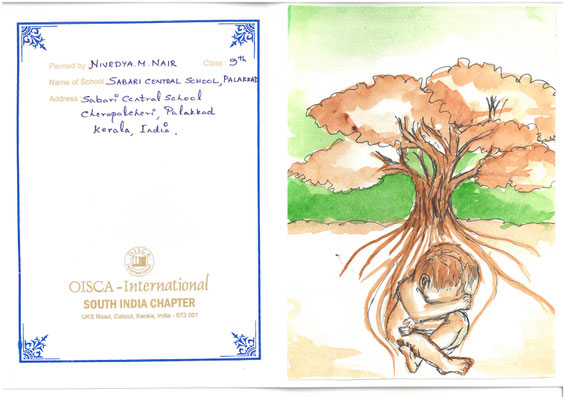 Painted by NIVEDYA.M.NAIR Class 9th
Name of School SABARI CENTRAL SCHOOL, PALAKKAD
Address Sabari Central School
Cherapalcheri, Palakkad
Kerala, India.
OISCA
International
OISCA-International
SOUTH INDIA CHAPTER
UKS Road, Calicut, Kerala, India - 673 001